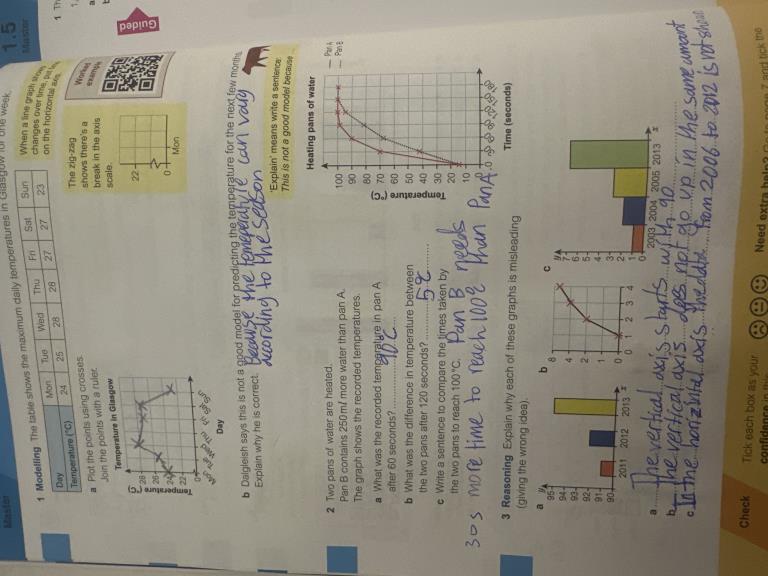 Master
1.5
Master
1 Modelling The table shows the maximum daily temperatures in Glasgow for one week.
Day Mon Tue Wed Thu Fri Sat Sun
Temperature (°C) 24 25 28 28 27 27 23
a Plot the points using crosses.
Join the points with a ruler.
When a line graph shows
changes over time, put time
on the horizontal axis.
The zig-zag
shows there's a
break in the axis
scale.
22
0
Mon
Worked
example
Guided
Temperature in Glasgow
Temperature (°C)
28
26
24
22
0
Mon Tue Wed Thu Fri Sat Sun
Day
b Dalgleish says this is not a good model for predicting the temperature for the next few months.
Explain why he is correct.
because the temperature can vary
according to the season
'Explain' means write a sentence:
This is not a good model because
2 Two pans of water are heated.
Pan B contains 250 ml more water than pan A.
The graph shows the recorded temperatures.
a What was the recorded temperature in pan A
after 60 seconds? 90°C
b What was the difference in temperature between
the two pans after 120 seconds? 5°C
c Write a sentence to compare the times taken by
the two pans to reach 100 °C. Pan B needs
30s more time to reach 100°C than Pan A
Heating pans of water
Pan A
Pan B
Temperature (°C)
100
90
80
70
60
50
40
30
20
10
0 30 60 90 120 150 180
Time (seconds)
3 Reasoning Explain why each of these graphs is misleading
(giving the wrong idea).
a
y
95
94
93
92
91
90
2011 2012 2013 x
b
8
4
2
1
0
0 1 2 3 4
c
y
7
6
5
4
3
2
1
0
2003 2004 2005 2013 x
a The vertical axis starts with 90
b The vertical axis does not go up in the same amount
c In the horizontal axis the data from 2006 to 2012 is not show
Check
Tick each box as your
confidence in this
Need extra help? Go to page 7 and tick the